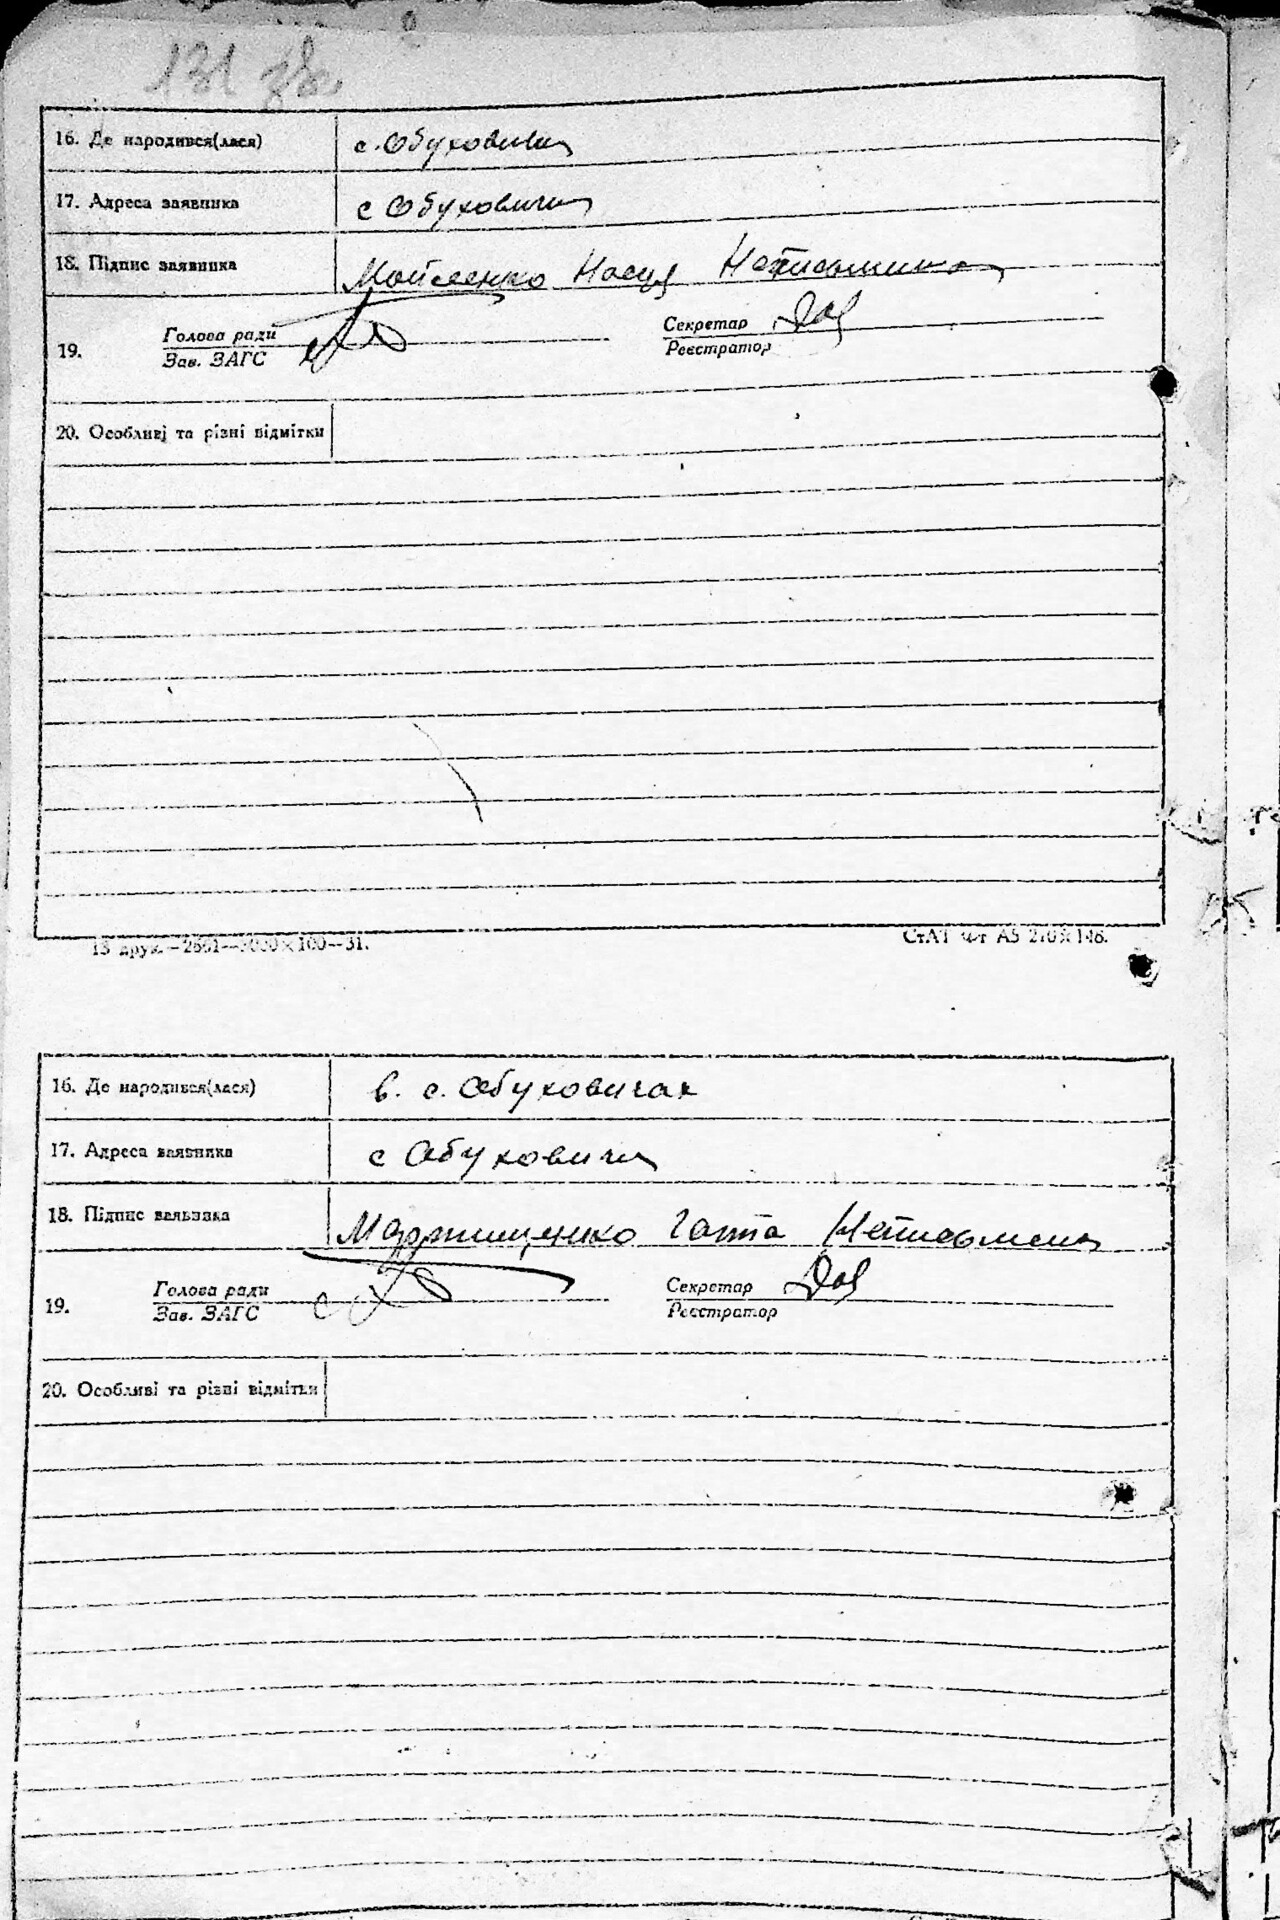 131 зв.
16. Де народився(лася) с. Обуховичи
17. Адреса заявника с Обуховичи
18. Підпис заявника Мойсеенко Настя Неписьмина
Голова ради Секретар
19. Зав. ЗАГС Реєстратор
20. Особливі та різні відмітки
13 друк.—2661—5000×100—31. СтАТ ф-т А5 210×148.
16. Де народився(лася) в. с. Обуховичах
17. Адреса заявника с Обуховичи
18. Підпис заявника Гапта Неписьмена
Голова ради Секретар
19. Зав. ЗАГС Реєстратор
20. Особливі та різні відмітки